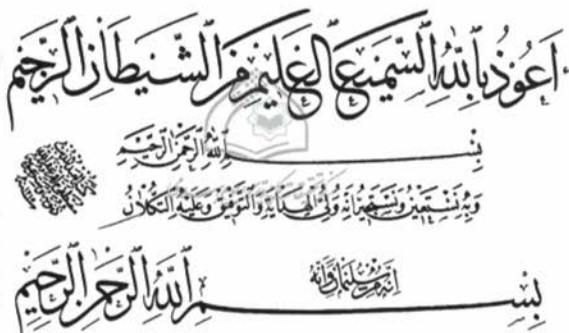 اعوذ بالله السميع العليم من الشيطان الرجيم
بسم الله الرحمن الرحيم
وبه نستعين ونستجير انه ولي الهداية والتوفيق وعليه التكلان
انه من سليمان وانه
بسم الله الرحمن الرحيم